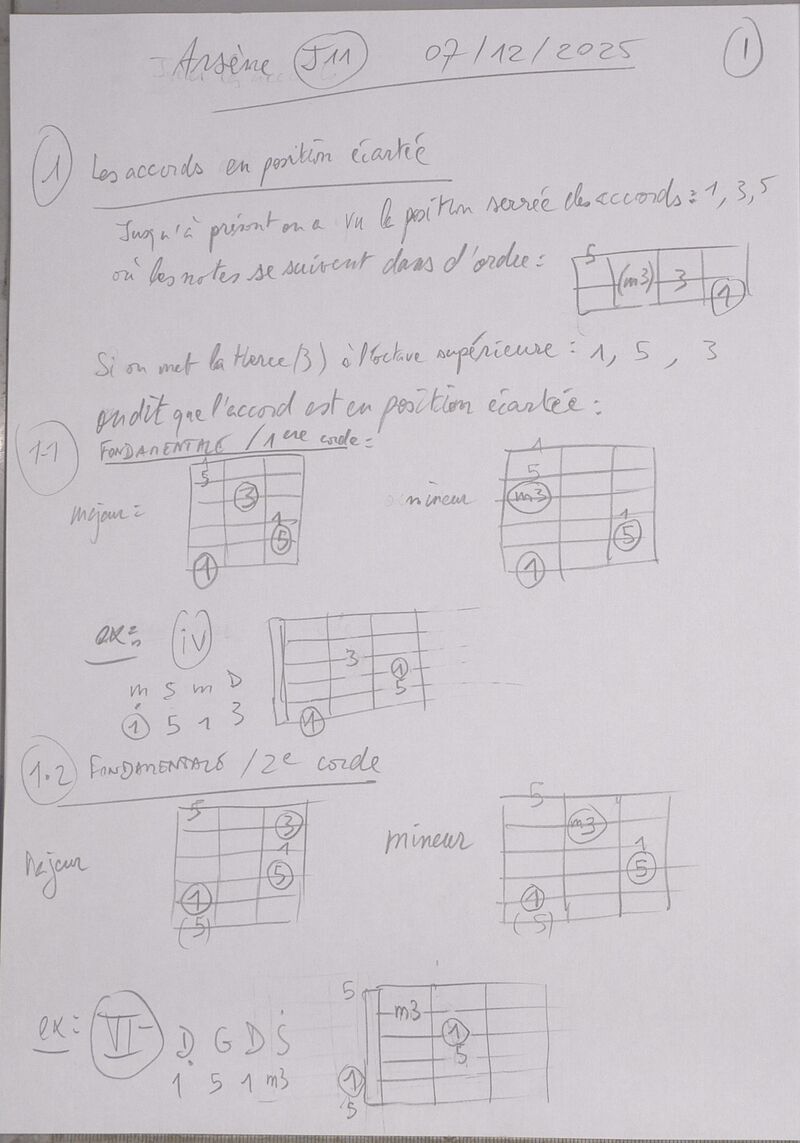 Arsène J11 07/12/2025 1
1 Les accords en position écartée
Jusqu'à présent on a vu la position serrée des accords : 1, 3, 5
où les notes se suivent dans d'ordre :
5
(m3) 3
1
Si on met la tierce (3) à l'octave supérieure : 1, 5, 3
on dit que l'accord est en position écartée :
1-1 FONDAMENTALE / 1ere corde =
majeur =
1
5
3
1
5
1
mineur
1
5
m3
1
5
1
ex: iv
3
1
5
1
m s m D
1 5 1 3
1.2 FONDAMENTALE / 2e corde
Majeur
5
3
1
5
1
(5)
mineur
5
m3
1
5
1
(5)
ex: VI-
D G D S
1 5 1 m3
5
m3
1
5
1
5